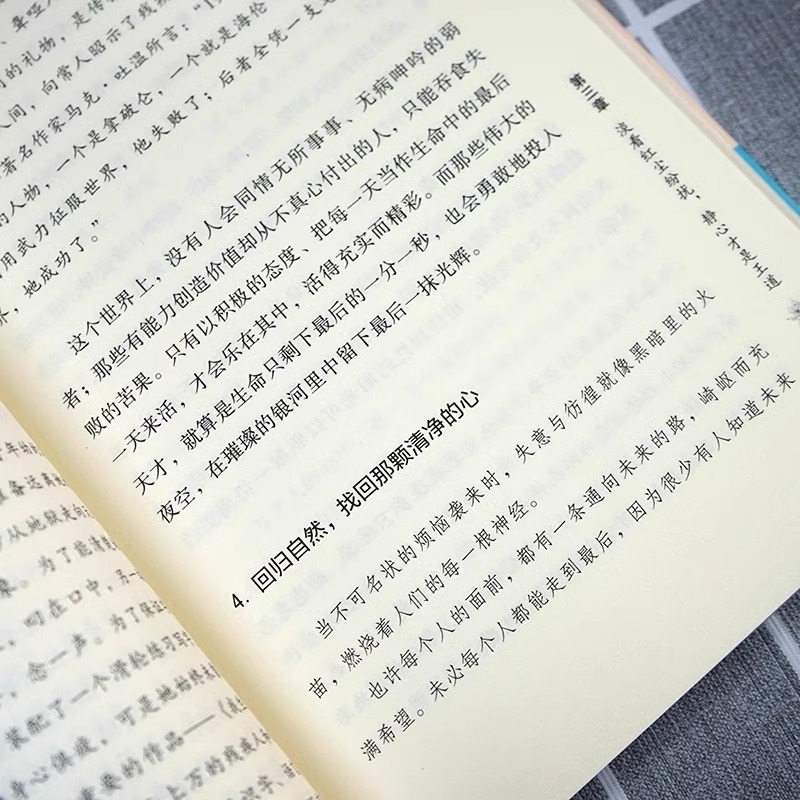 、聋哑
的礼物，是传
人间，向常人昭示了残疾
著名作家马克·吐温所言：“1
的人物，一个是拿破仑，一个就是海伦
用武力征服世界，他失败了；后者全凭一支
界，她成功了。”
这个世界上，没有人会同情无所事事、无病呻吟的弱
者；那些有能力创造价值却从不真心付出的人，只能吞食失
败的苦果。只有以积极的态度、把每一天当作生命中的最后
一天来活，才会乐在其中，活得充实而精彩。而那些伟大的
天才，就算是生命只剩下最后的一分一秒，也会勇敢地投入
夜空，在璀璨的银河里中留下最后一抹光辉。
4. 回归自然，找回那颗清净的心
当不可名状的烦恼袭来时，失意与彷徨就像黑暗里的火
苗，燃烧着人们的每一根神经。
也许每个人的面前，都有一条通向未来的路，崎岖而充
满希望。未必每个人都能走到最后，因为很少有人知道未来
第三章
淡看红尘纷扰，静心才是王道
年的
准备远离
从她狱走向
象。为了能清楚
叼在口中，另一
，念一声。为了保证
装配了一个滑轮练习
身心俱疲，可是她始终
重要的作品——
上万的残疾人
识字、